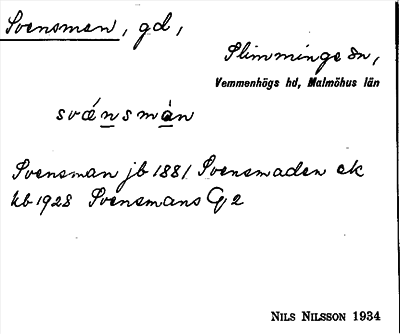 Svensman, gd,
Slimminge sn,
Vemmenhögs hd, Malmöhus län
svánsmàn
Svensman jb 1881 Svensmaden ek
kb 1928 Svensmans G 2
NILS NILSSON 1934